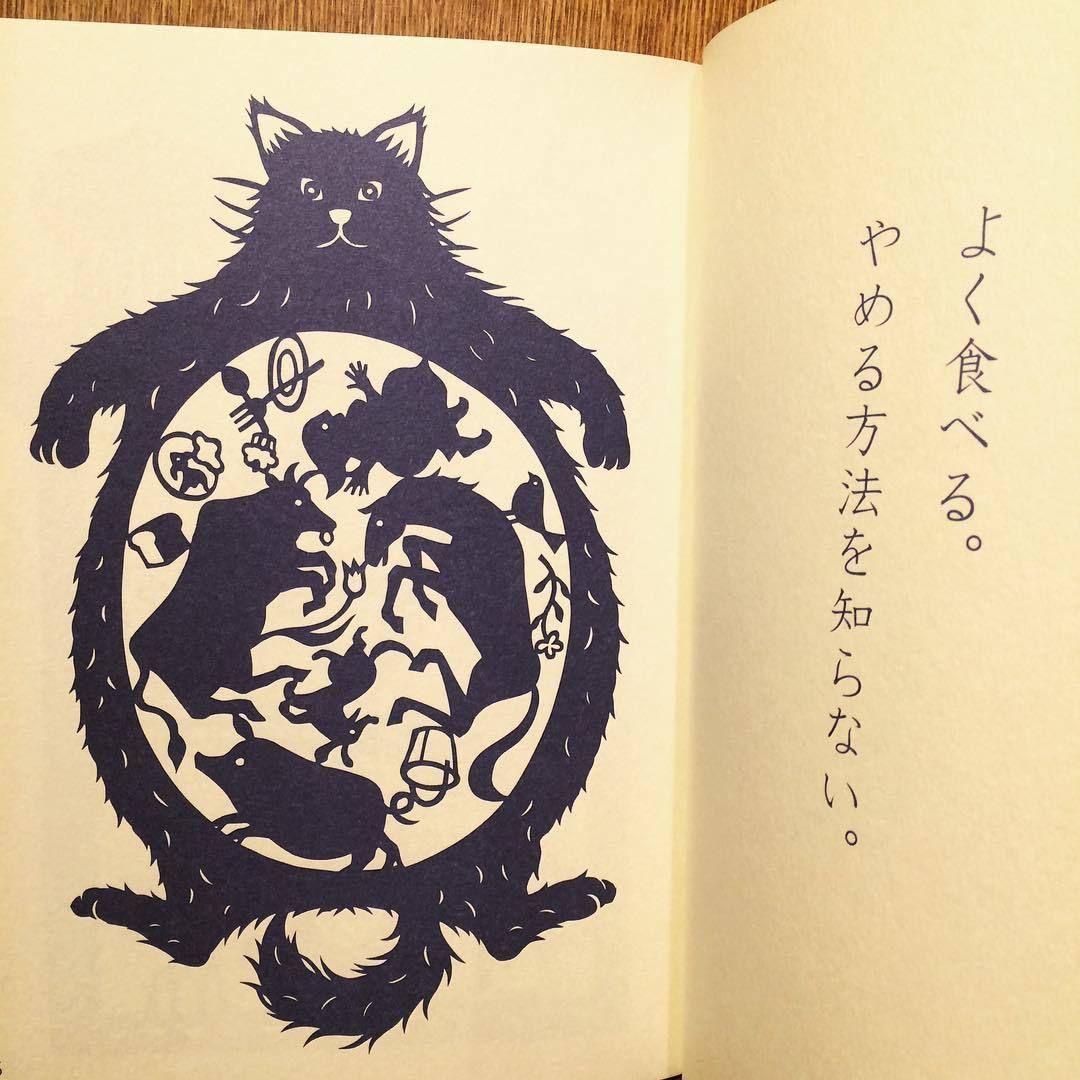 よく食べる。
やめる方法を知らない。